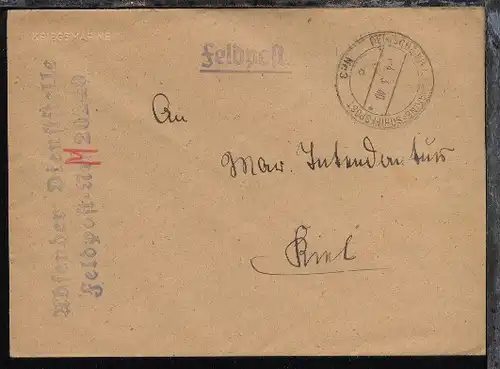 KRIEGSMARINE
Feldpost
An
Mar. Intendantur
Kiel
Absender Dienststelle
Feldpost-Nr. M